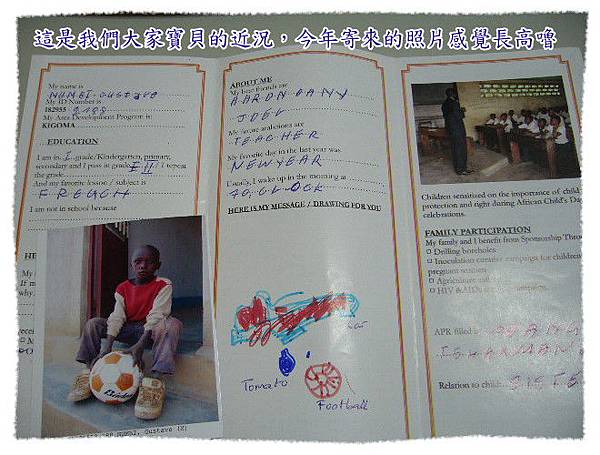 這是我們大家寶貝的近況，今年寄來的照片感覺長高嚕
My name is
NUMBI GUSTAVE
My ID Number is
182955 -
My Area Development Program is:
KIGOMA
EDUCATION
I am in I grade/Kindergarten, primary,
secondary and I pass in grade II / I repeat
the grade
And my favorite lesson / subject is
FRENCH
I am not in school because
ABOUT ME
My best friends are
AARON DANY
JOEL
My future ambitions are
TEACHER
My favorite day in the last year was
NEW YEAR
Usually, I wake up in the morning at
O,CLOCK
HERE IS MY MESSAGE / DRAWING FOR YOU
Tomato
Football
Children sensitized on the importance of child
protection and right during African Child's Day
celebrations.
FAMILY PARTICIPATION
My family and I benefit from Sponsorship
Drilling boreholes
Inoculation campaign for children
pregnant women
Agriculture
HIV &AIDs campaign
APR filled
Relation to child
Gustave